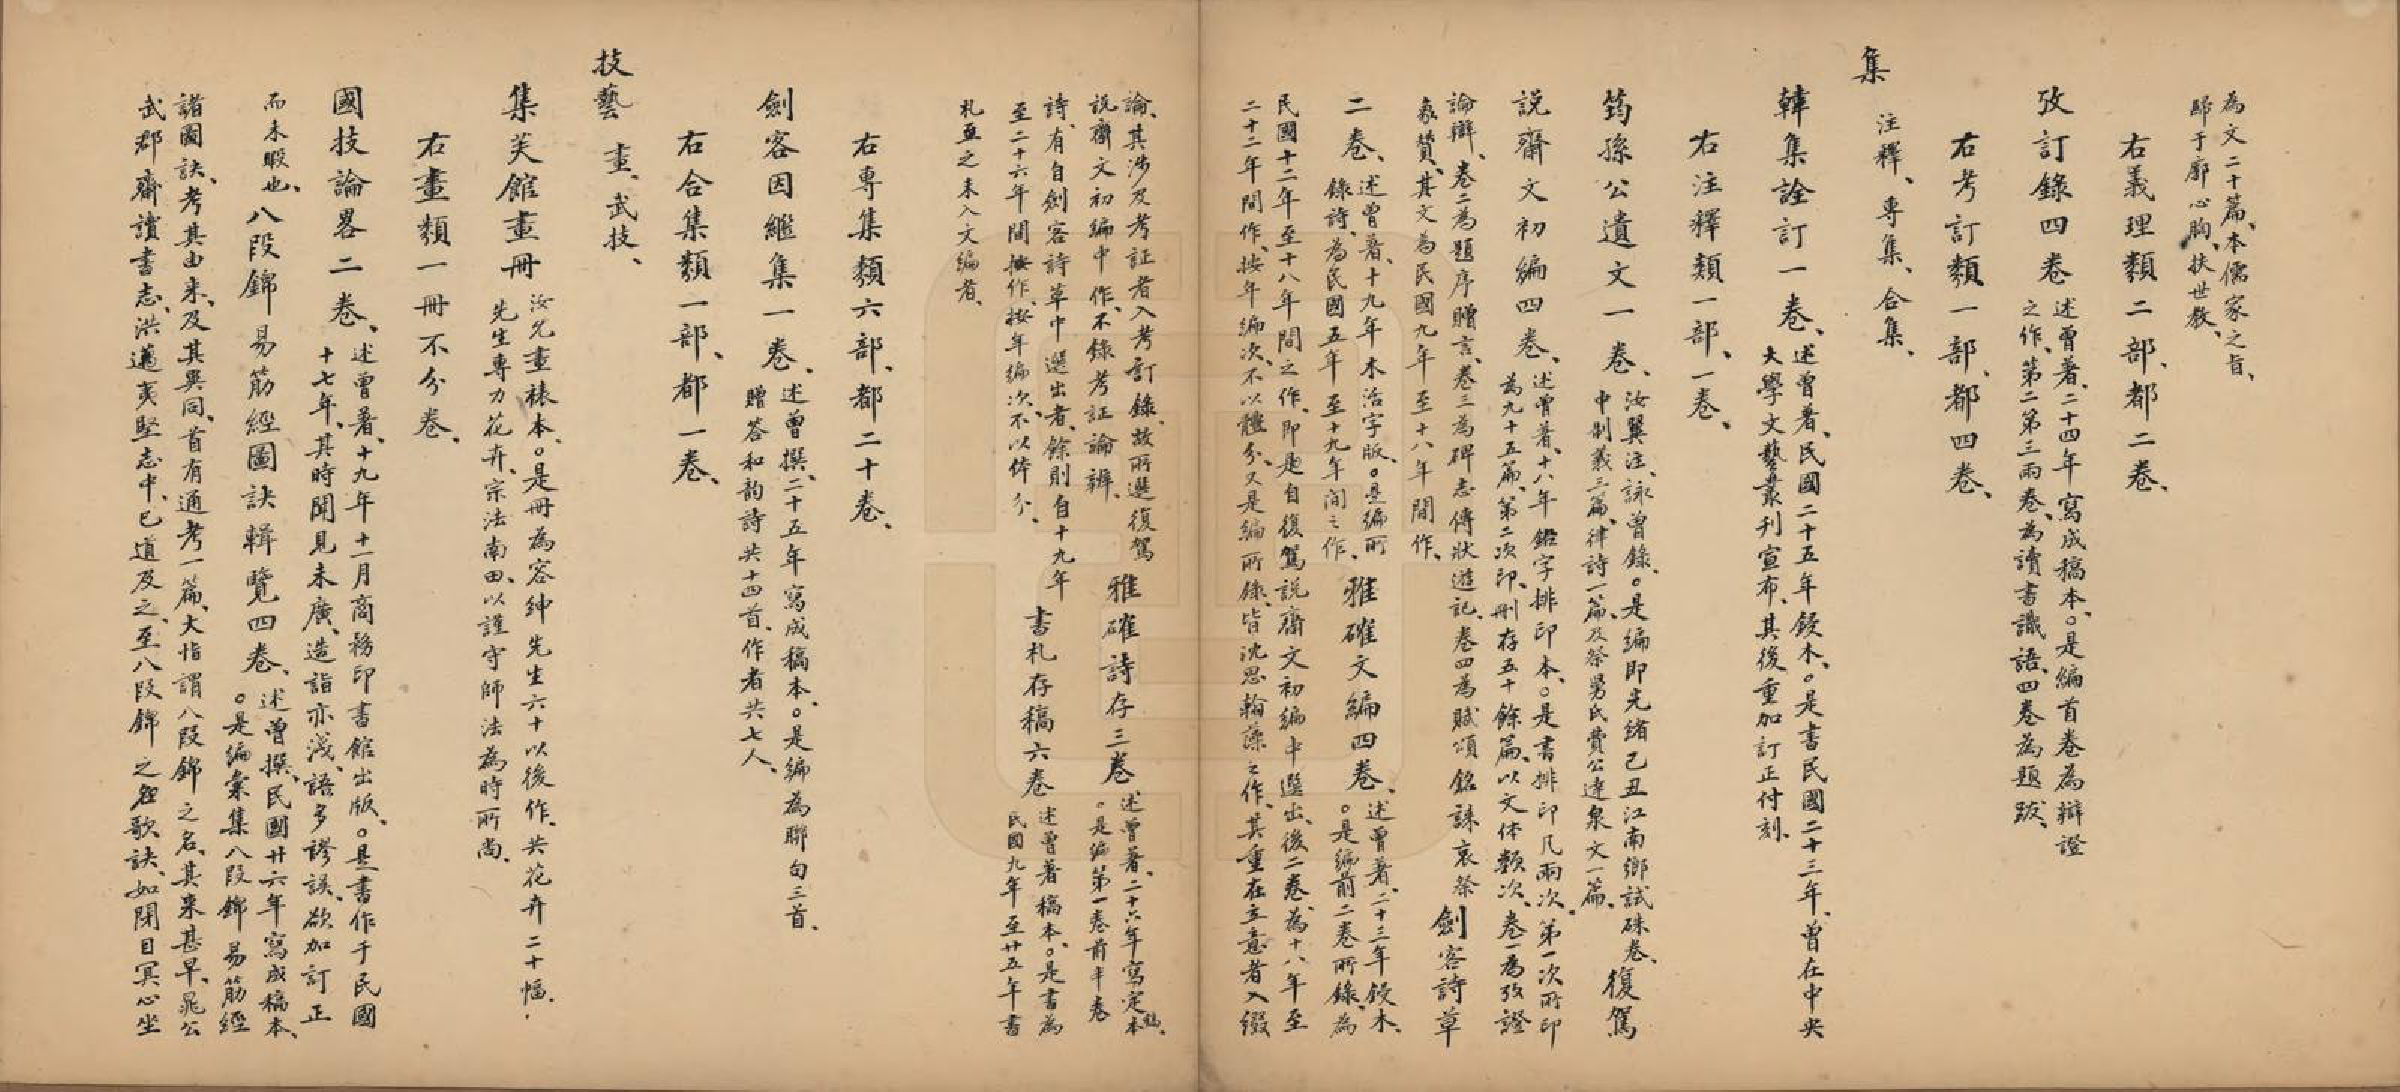 為文二十篇、本儒家之旨、
歸于廓心胸、扶世教、
右義理類二部、都二卷、
攷訂錄四卷
述曾著、二十四年寫成稿本、○是編首卷為辯證
之作、第二第三兩卷為讀書識語、四卷為題跋、
右考訂類一部、都四卷、
集
注釋、專集、合集、
韓集詮訂一卷、
述曾著、民國二十五年鋟木、○是書民國二十三年、曾在中央
大學文藝叢刊宣布、其後重加訂正付刻、
右注釋類一部、一卷、
筠孫公遺文一卷、
汝翼注、詠曾錄、○是編即先緒己丑江南鄉試硃卷、
中制義三篇、律詩一篇、及祭舅氏費公達泉文一篇、
復駕
說齋文初編四卷、
述曾著、十八年鉛字排印本、○是書排印凡兩次、第一次所印
為九十五篇、第二次印、刪存五十餘篇、以文体類次、卷一為攷證
論辯、卷二為題序贈言、卷三為碑志傳狀遊記、卷四為賦頌銘誄哀祭
象贊、其文為民國九年至十八年間作、
劍客詩草
二卷、
述曾著、十九年木活字版、○是編所
錄詩、為民國五年至十九年間之作、
雅確文編四卷、
述曾著、二十三年鋟木、
○是編前二卷所錄、為
民國十二年至十八年間之作、即是自復駕說齋文初編中選出、後二卷、為十八年至
二十二年間作、按年編次、不以體分、又是編所錄、皆沈思翰藻之作、其重在立意者入綴
論、其涉及考証者入考訂錄、故所選復駕
說齋文初編中作、不錄考証論辨、
雅確詩存三卷
述曾著、二十六年寫定本、
○是編第一卷前半卷
詩、有自劍客詩草中選出者、餘則自十九年
至二十六年間按作、按年編次、不以体分、
書札存稿六卷
述曾著稿本、○是書為
民國九年至廿五年書
札亟之未入文編者、
右專集類六部、都二十卷、
劍客因繼集一卷、
述曾撰、二十五年寫成稿本、○是編為聯句三首、
贈答和韵詩共十四首、作者共七人、
右合集類一部、都一卷、
技藝
畫、武技、
集芙館畫冊
汝兄畫裱本、○是冊為容紳先生六十以後作、共花卉二十幅、
先生專力花卉、宗法南田、以謹守師法為時所尚、
右畫類一冊不分卷、
國技論畧二卷、
述曾著、十九年十一月商務印書館出版、○是書作于民國
十七年、其時聞見未廣、造詣亦淺、語多謬誤、欲加訂正
而未暇也、
八段錦易筋經圖訣輯覽四卷、
述曾撰、民國廿六年寫成稿本、
○是編彙集八段錦易筋經
諸圖訣、考其由來、及其異同、首有通考一篇、大恉謂八段錦之名、其来甚早、晁公
武郡齋讀書志、洪邁夷堅志中、已道及之、至八段錦之程歌訣、如閉目冥心坐